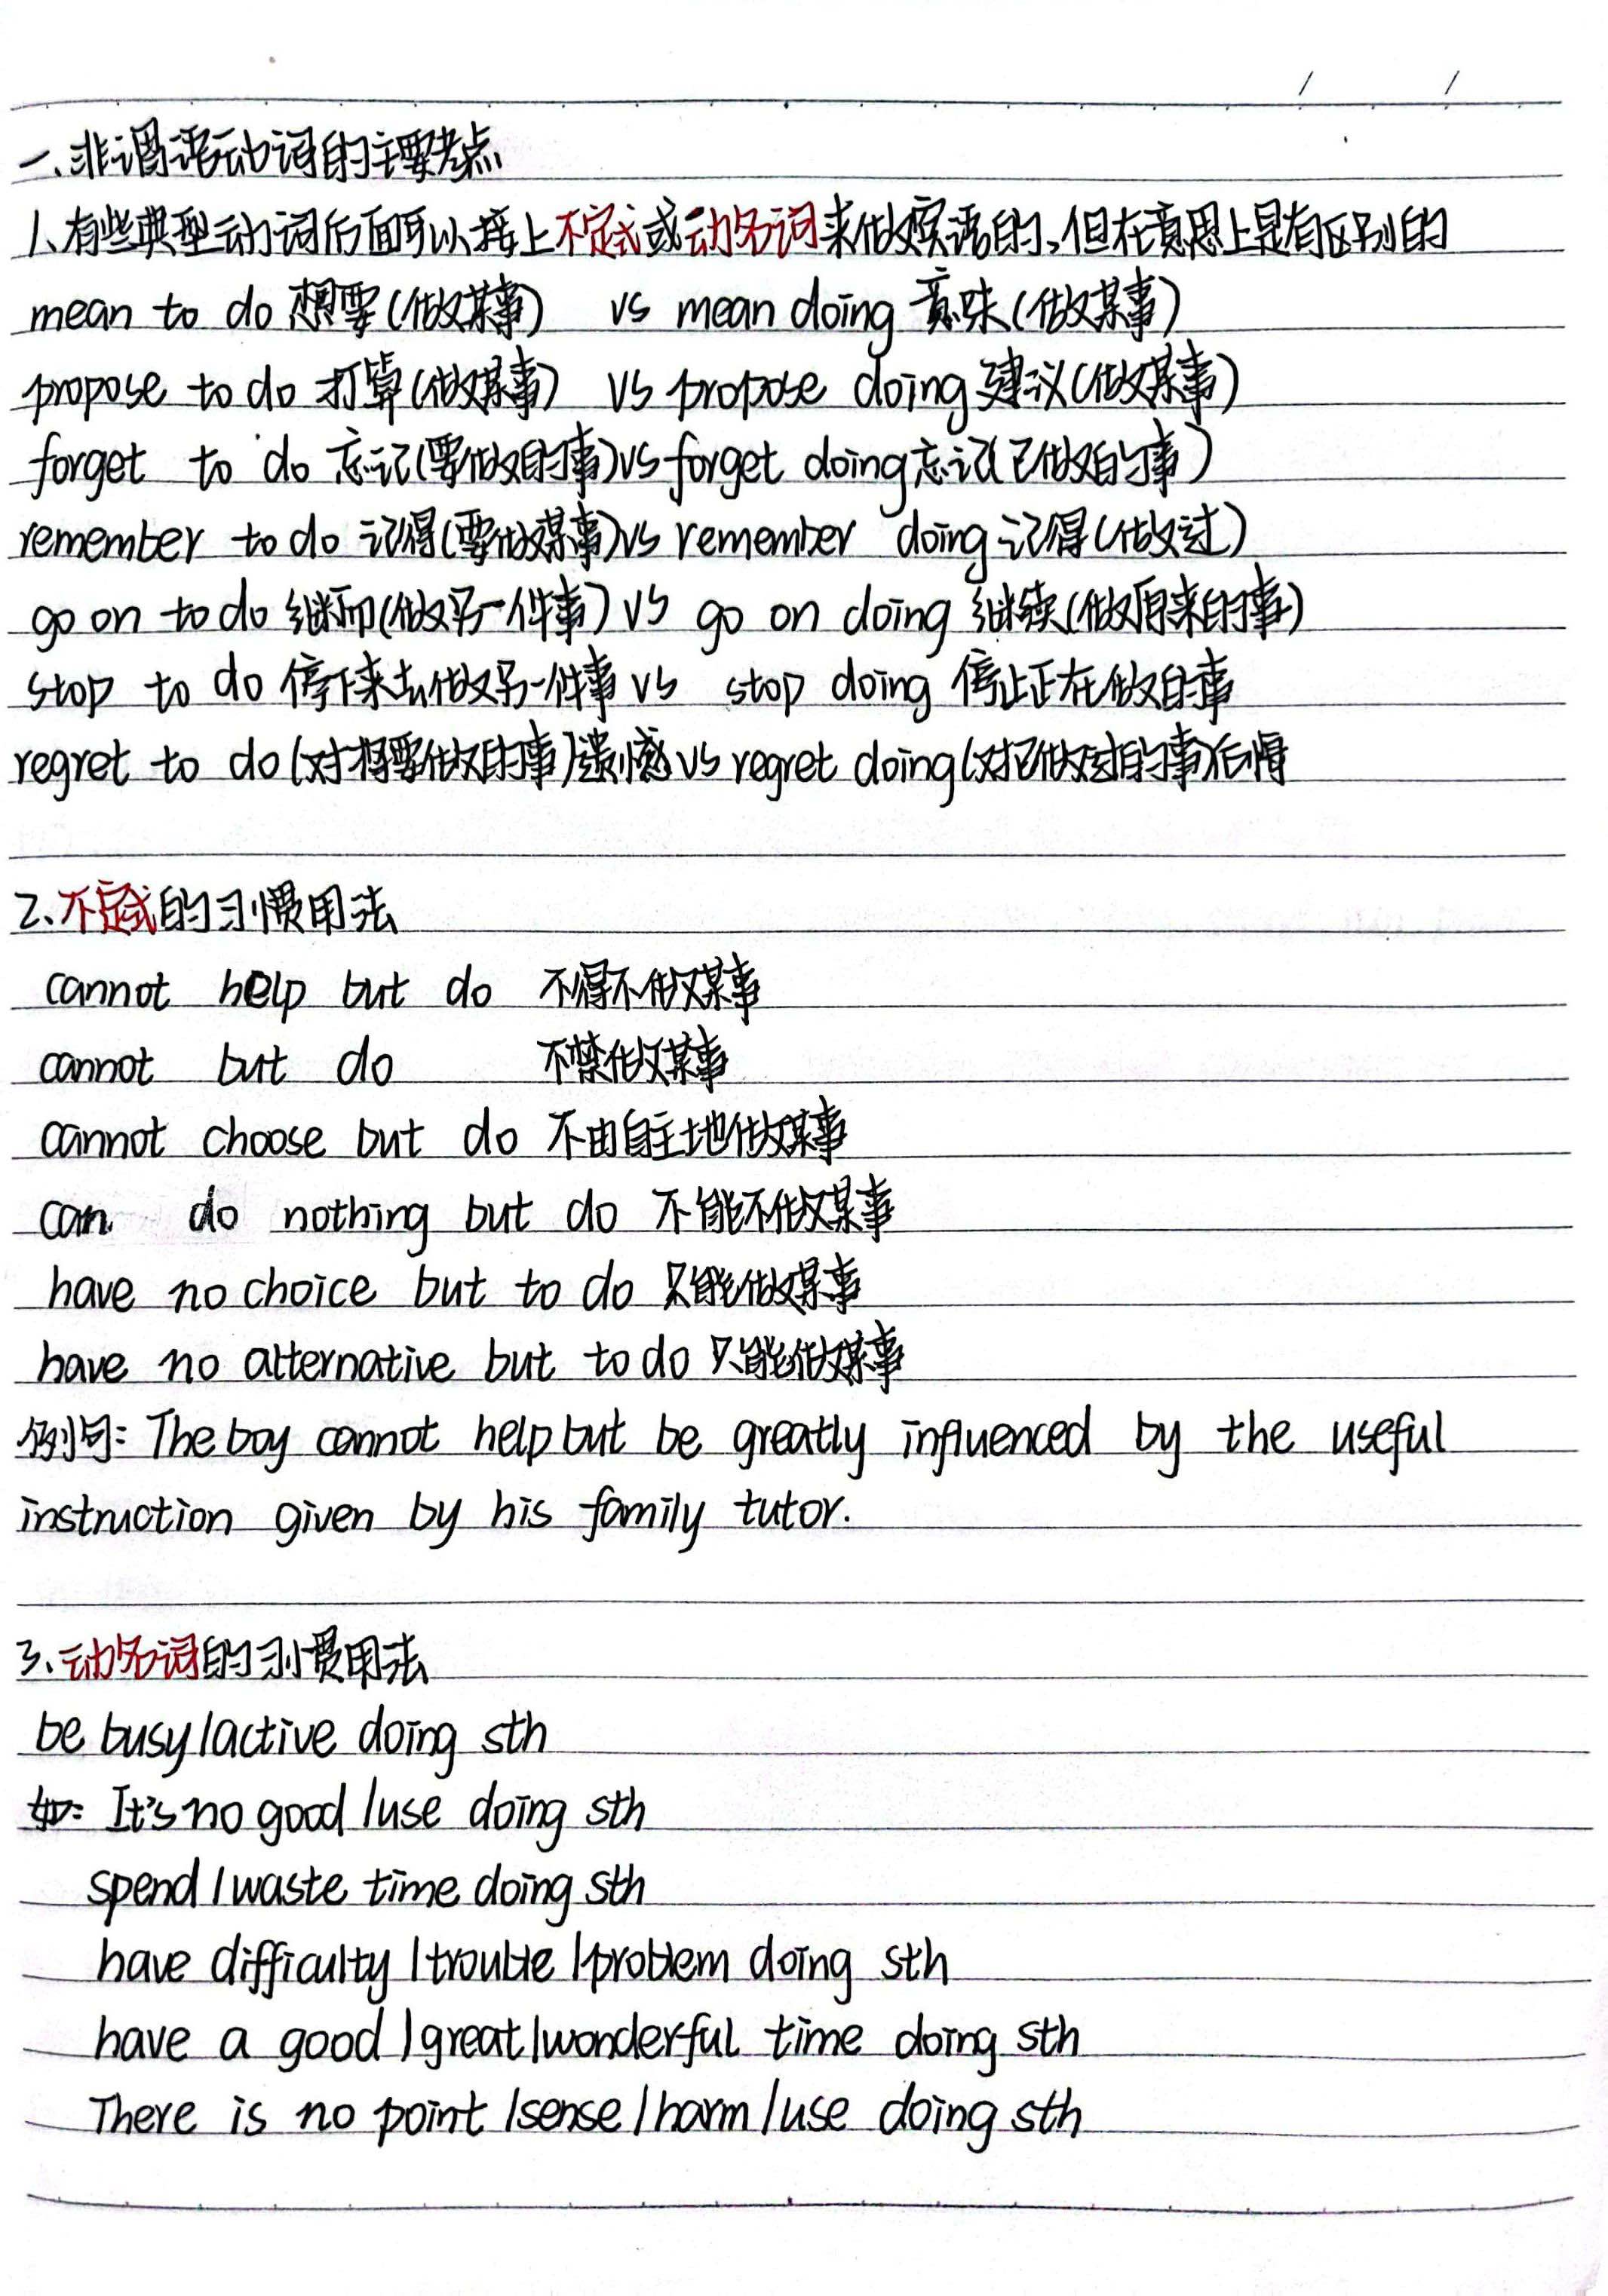 一、非谓语动词的主要考点
1、有些典型动词后面可以接上不定式或动名词来做宾语的,但在意思上是有区别的
mean to do 想要(做某事) vs mean doing 意味(做某事)
propose to do 打算(做某事) vs propose doing 建议(做某事)
forget to do 忘记(要做的事)vs forget doing 忘记(已做的事)
remember to do 记得(要做某事)vs remember doing 记得(做过)
go on to do 继而(做另一件事) vs go on doing 继续(做原来的事)
stop to do 停下来去做另一件事 vs stop doing 停止正在做的事
regret to do (对将要做的事)遗憾 vs regret doing (对已做过的事)后悔
2、不定式的习惯用法
cannot help but do 不得不做某事
cannot but do 不禁做某事
cannot choose but do 不由自主地做某事
can do nothing but do 不能不做某事
have no choice but to do 只能做某事
have no alternative but to do 只能做某事
例句: The boy cannot help but be greatly influenced by the useful
instruction given by his family tutor.
3、动名词的习惯用法
be busy/active doing sth
如: It's no good/use doing sth
spend/waste time doing sth
have difficulty/trouble/problem doing sth
have a good/great/wonderful time doing sth
There is no point/sense/harm/use doing sth